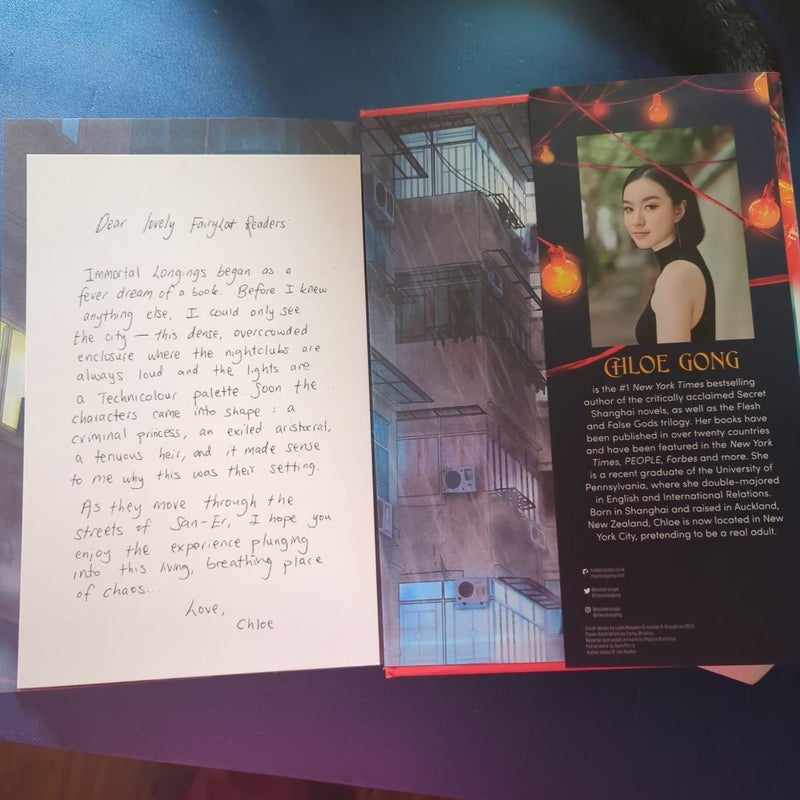 Dear lovely Fairyloot Readers:
Immortal Longings began as a
fever dream of a book. Before I knew
anything else, I could only see
the city — this dense, overcrowded
enclosure where the nightclubs are
always loud and the lights are
a Technicolour palette. Soon the
characters came into shape: a
criminal princess, an exiled aristocrat,
a tenuous heir, and it made sense
to me why this was their setting.
As they move through the
streets of San-Er, I hope you
enjoy the experience plunging
into this living, breathing place
of chaos...
Love,
Chloe
CHLOE GONG
is the #1 New York Times bestselling
author of the critically acclaimed Secret
Shanghai novels, as well as the Flesh
and False Gods trilogy. Her books have
been published in over twenty countries
and have been featured in the New York
Times, PEOPLE, Forbes and more. She
is a recent graduate of the University of
Pennsylvania, where she double-majored
in English and International Relations.
Born in Shanghai and raised in Auckland,
New Zealand, Chloe is now located in New
York City, pretending to be a real adult.
hodderscape.co.uk
thechloegong.com
@hodderscape
@thechloegong
@hodderscape
@thechloegong